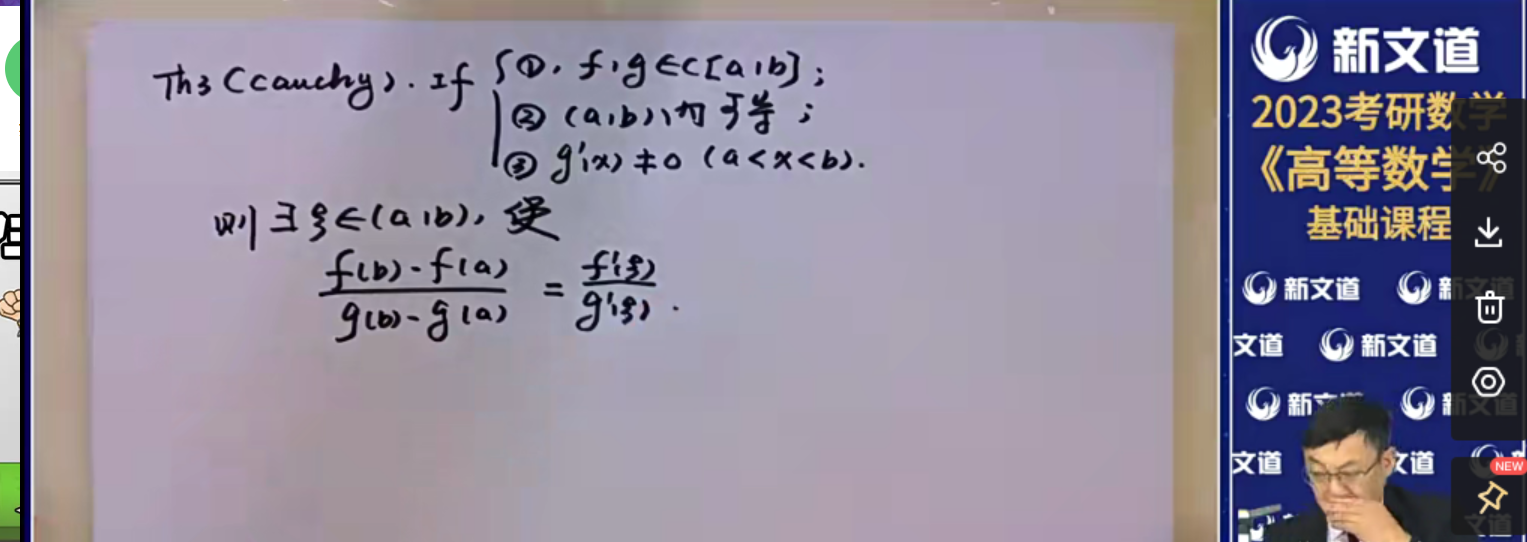 Th3 (cauchy). If { ①. f,g∈C[a,b];
② (a,b)内可导;
③ g'(x)≠0 (a<x<b).
则∃ξ∈(a,b), 使
f(b)-f(a) / g(b)-g(a) = f'(ξ) / g'(ξ).
新文道
2023考研数学
《高等数学》
基础课程
新文道 新文道
文道 新文道
新文道 新文道
文道 文道
NEW
文道